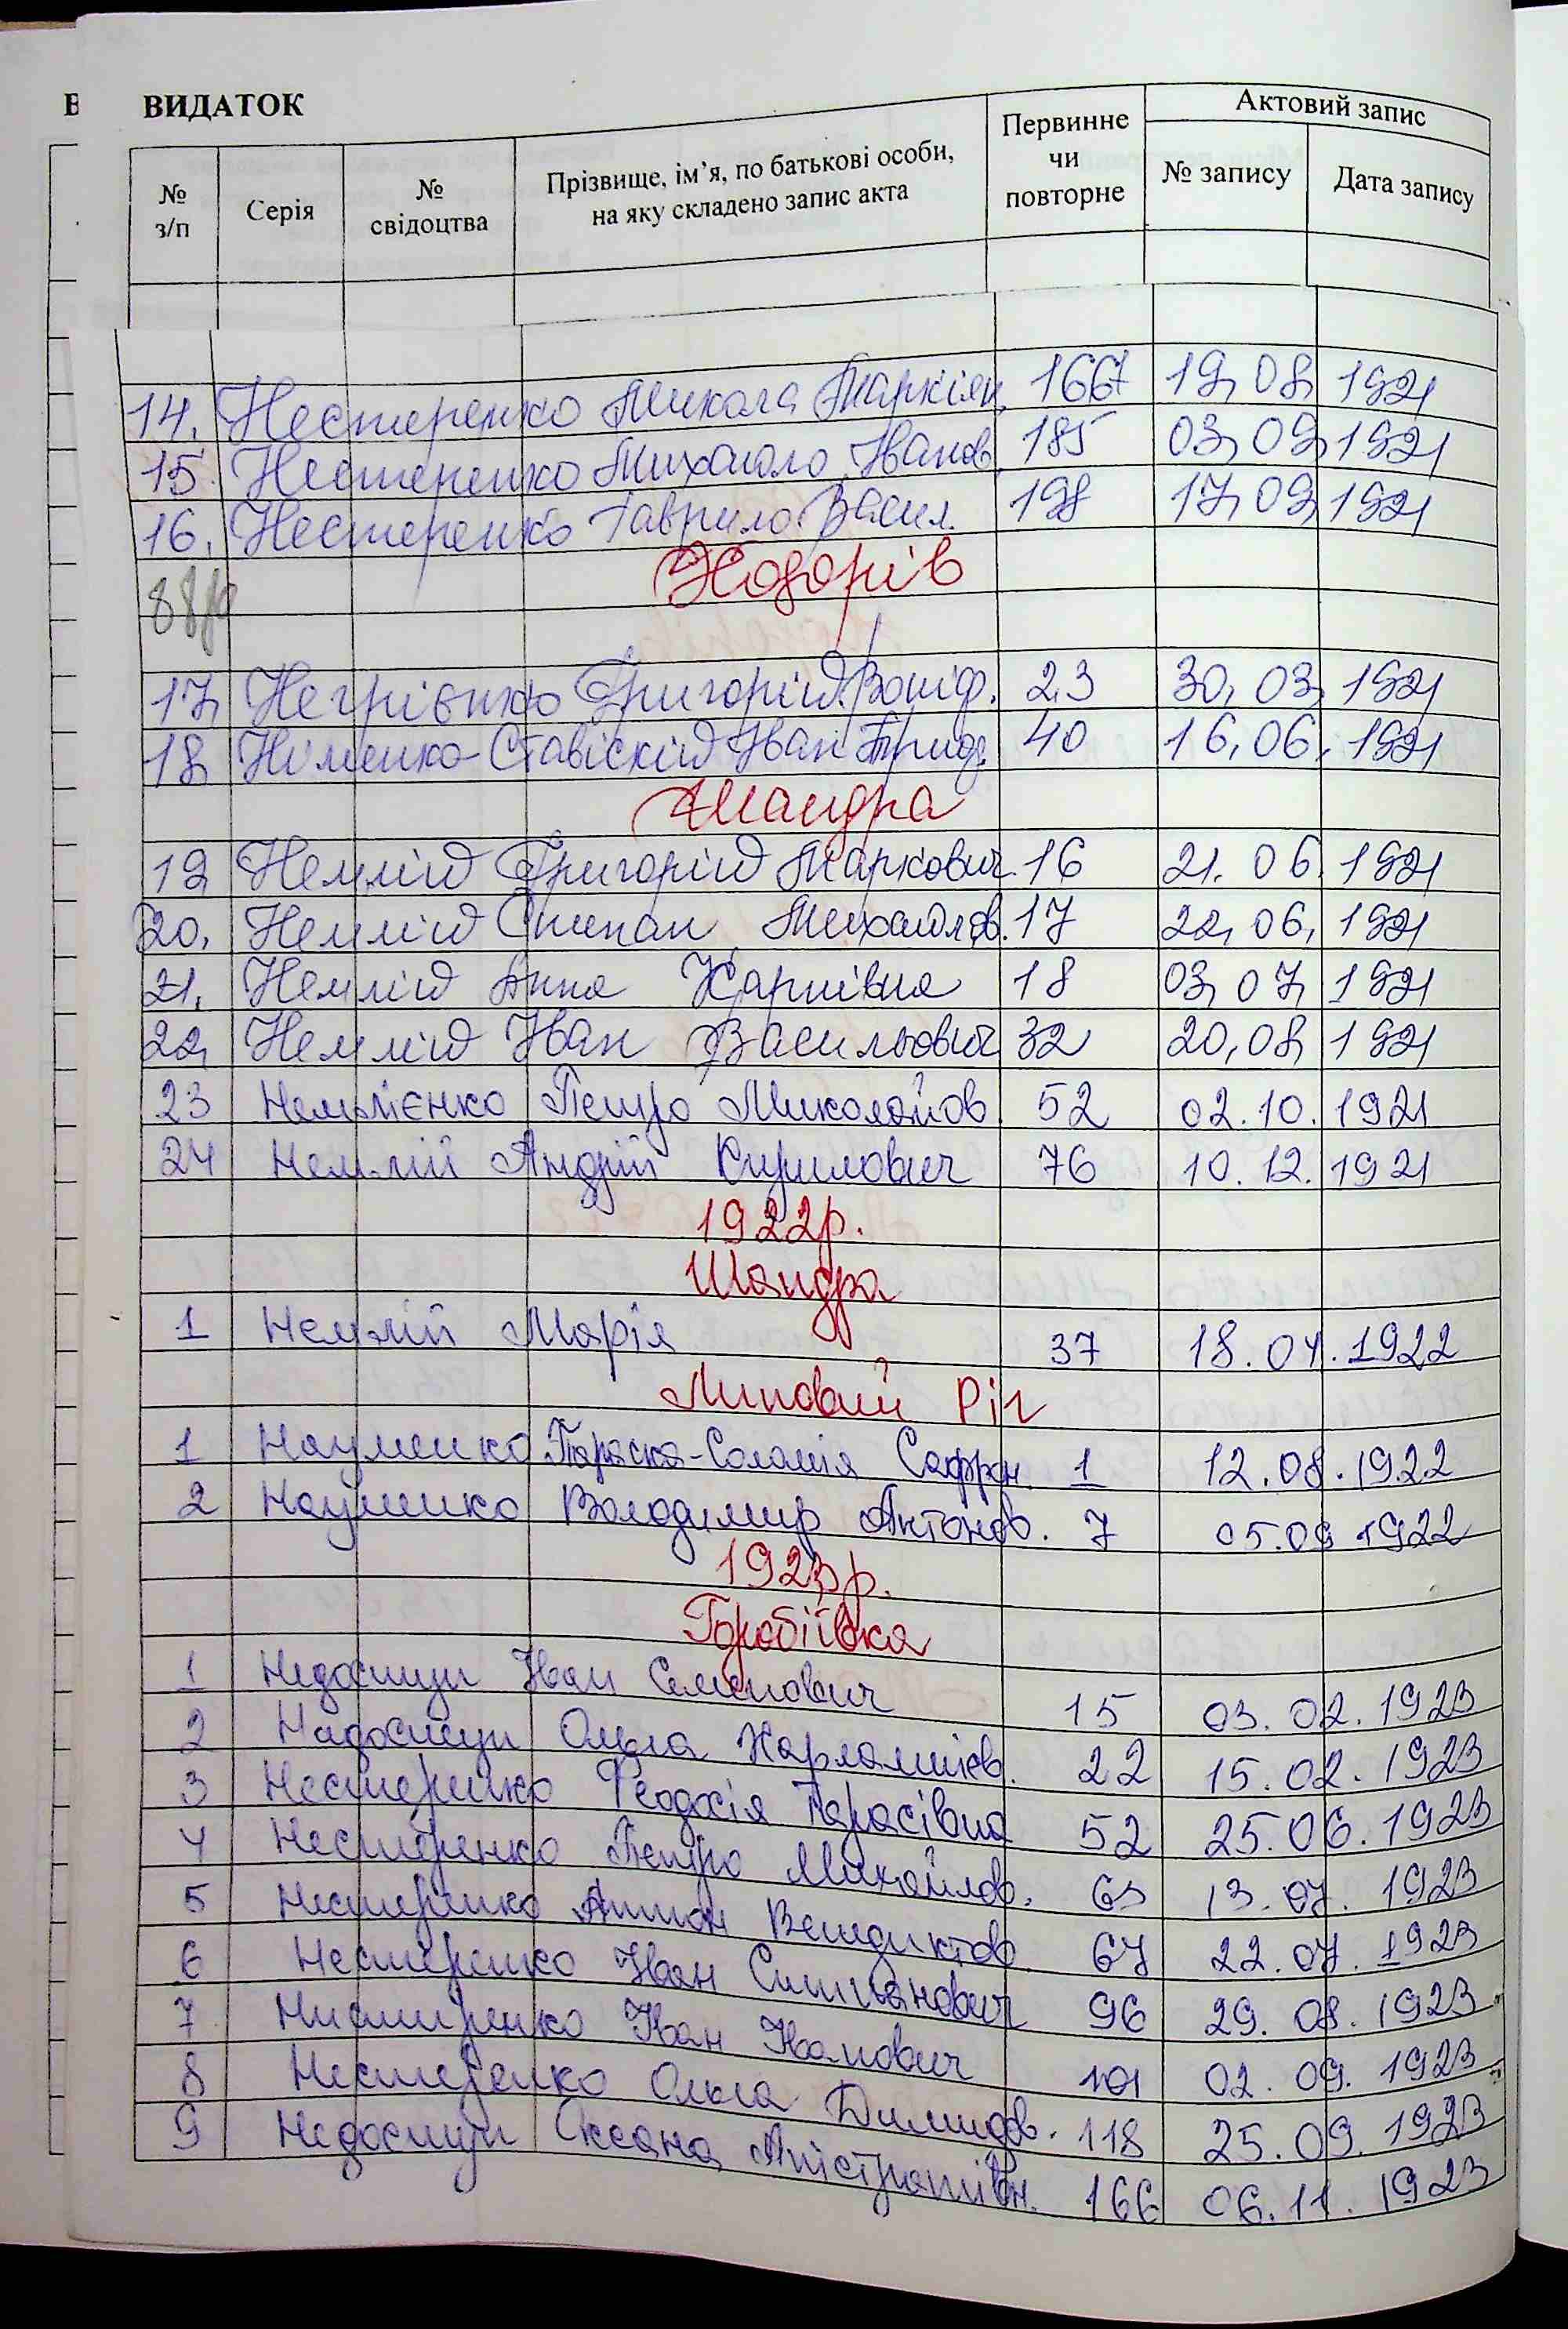 В ВИДАТОК
№ з/п Серія № свідоцтва Прізвище, ім’я, по батькові особи, на яку складено запис акта Первинне чи повторне Актовий запис № запису Дата запису
14. Нестеренко Микола Маркіян. 166 19,08, 1921
15. Нестеренко Михайло Іванов. 185 03,09, 1921
16. Нестеренко Гаврило Васил. 198 17,09, 1921
Ходорів
17, Григорій 23 30,03, 1921
18, Німенко-Ставіскій Іван 40 16,06, 1921
Шандра
19 Немлій Григорій Маркович 16 21.06. 1921
20. Немлій Степан Михайлов. 17 22,06, 1921
21. Немлій Анна Карпівна 18 03,07, 1921
22, Немлій Іван Васильович 32 20,08, 1921
23 Петро Миколайов. 52 02.10. 1921
24 Немлій Андрій Кирилович 76 10.12. 1921
1922р.
Шандра
1 Немлій Марія 37 18.04.1922
Липовий Ріг
1 Науменко Параска-Соломія Сафрон. 1 12.08.1922
2 Науменко Володимир Антонов. 7 05.09 1922
1923р.
Горобіївка
1 Недоступ Іван Семенович 15 03.02.1923
2 Надоступ Ольга Харлампієв. 22 15.02.1923
3 Нестеренко Феодосія Тарасівна 52 25.06.1923
4 Нестеренко Петро Михайлов. 63 13.07.1923
5 Нестеренко Антон Венедиктов. 67 22.07.1923
6 Нестеренко Іван Степанович 96 29.08.1923
7 Нестеренко Іван Іванович 101 02.09.1923
8 Нестеренко Ольга Демидов. 118 25.09.1923
9 Недоступ Оксана Апістратівн. 166 06.11.1923